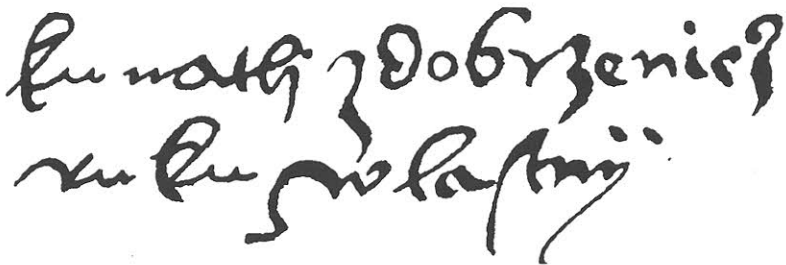 kunath z dobrzenicz
ruku wlastnij